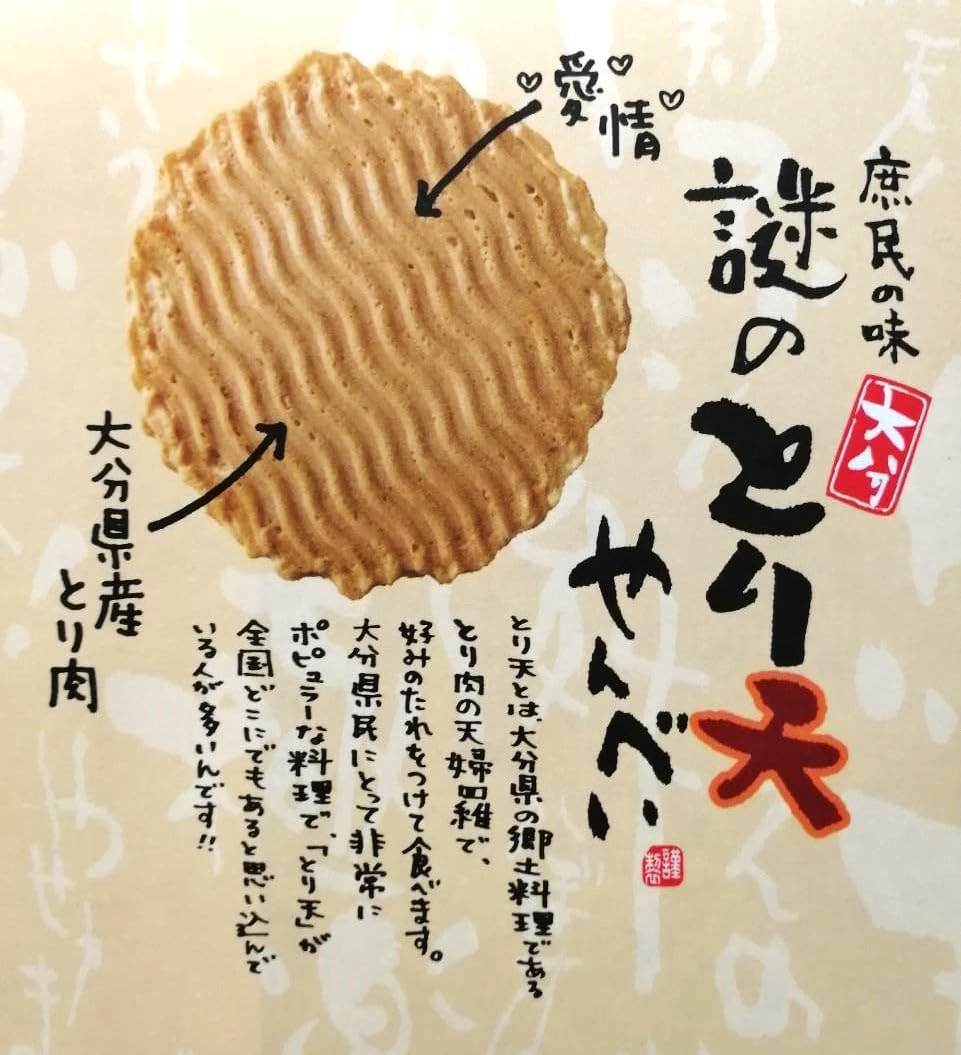 庶民の味
大分
謎のとり天
せんべい
謹製
愛情
大分県産
とり肉
とり天とは、大分県の郷土料理である
とり肉の天婦羅で、
好みのたれをつけて食べます。
大分県民にとって非常に
ポピュラーな料理で、「とり天」が
全国どこにでもあると思い込んで
いる人が多いんです!!